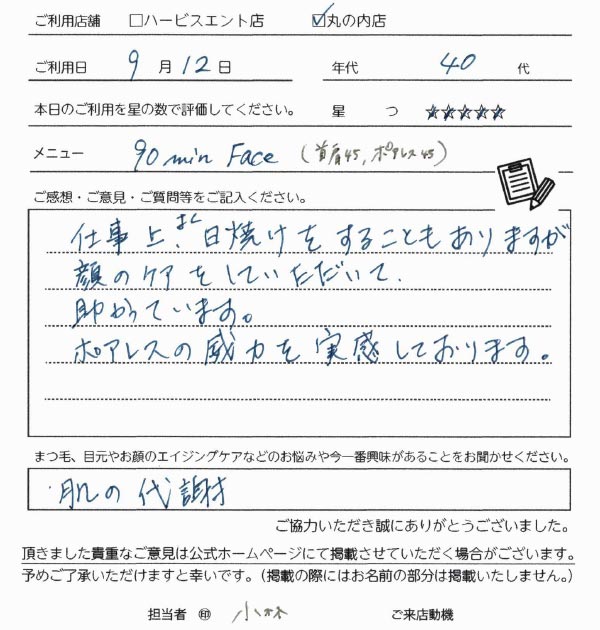 ご利用店舗 □ハービスエント店 ☑丸の内店
ご利用日 9月12日 年代 40代
本日のご利用を星の数で評価してください。 星つ ☆☆☆☆☆
メニュー 90min Face (首肩45,ポアレス45)
ご感想・ご意見・ご質問等をご記入ください。
仕事上、よく日焼けをすることもありますが
顔のケアをしていただいて、
助かっています。
ポアレスの威力を実感しております。
まつ毛、目元やお顔のエイジングケアなどのお悩みや今一番興味があることをお聞かせください。
・肌の代謝
ご協力いただき誠にありがとうございました。
頂きました貴重なご意見は公式ホームページにて掲載させていただく場合がございます。
予めご了承いただけますと幸いです。(掲載の際にはお名前の部分は掲載いたしません。)
担当者 ㊞ 小林 ご来店動機